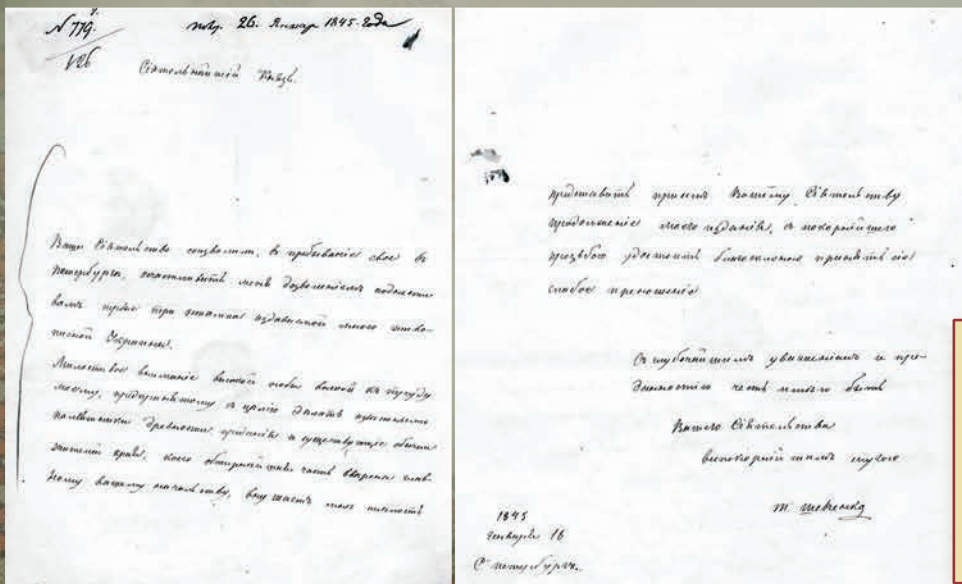 N 779.
126
пол. 26. Январ 1845. года
Сіятельнѣйшій Князь.
Ваше Сіятельство изволили, въ пребываніе свое въ
Петербургѣ, осчастливить меня дозволеніемъ поднести
вамъ первые три эстампа издаваемой мною живо-
писной Украины.
Милостивое вниманіе высокой особы вашей къ труду
моему, предпринятому съ цѣлію сдѣлать извѣстными
памятники древности, преданія и существующіе обычаи
жителей края, коего обширнѣйшая часть ввѣрена глав-
ному вашему начальству, внушаетъ мнѣ смѣлость
представить при семъ Вашему Сіятельству
продолженіе моего изданія, съ покорнѣйшею
прозьбою удостоить благосклонно принять сіе
слабое приношеніе
Съ глубочайшимъ уваженіемъ и пре-
данностію честь имѣю быть
Вашего Сіятельства
всепокорнѣйшимъ слугою
Т. Шевченко
1845
генваря 16
С. петербургъ.